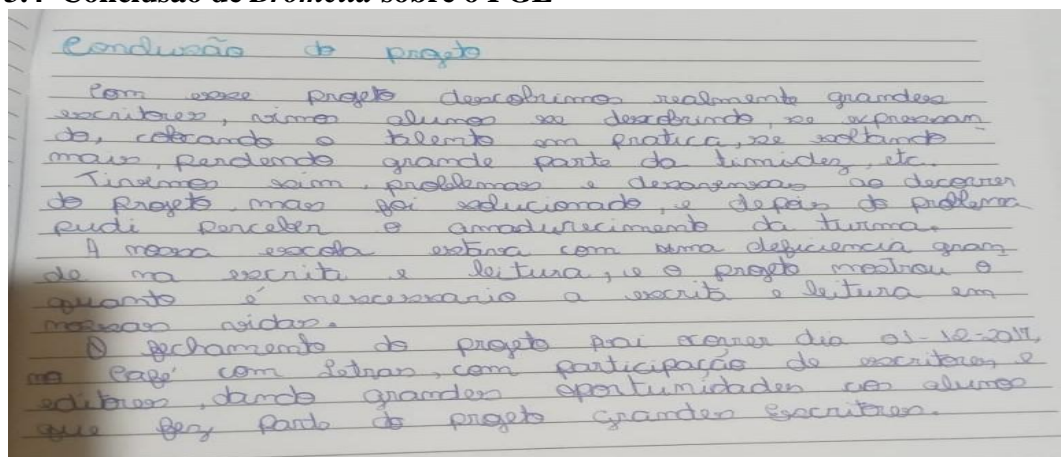 3.4 Conclusão de Bromélia sobre o PGE
Conclusão do projeto
Com esse projeto descobrimos realmente grandes
escritores, vimos alunos se descobrindo, se expressan
do, colocando o talento em pratica, se soltando
mais, perdendo grande parte da timidez, etc.
Tivemos sim, problemas e desavenças ao decorrer
do projeto, mas foi solucionado, e depois do problema
pudi perceber o amadurecimento da turma.
A nossa escola estava com uma deficiencia gran
de na escrita e leitura, e o projeto mostrou o
quanto é nescessario a escrita e leitura em
nossas vidas.
O fechamento do projeto vai ocorrer dia 01-12-2017,
no Café com Letras, com participação de escritores e
editores, dando grandes oportunidades aos alunos
que fez parte do projeto Grandes Escritores.